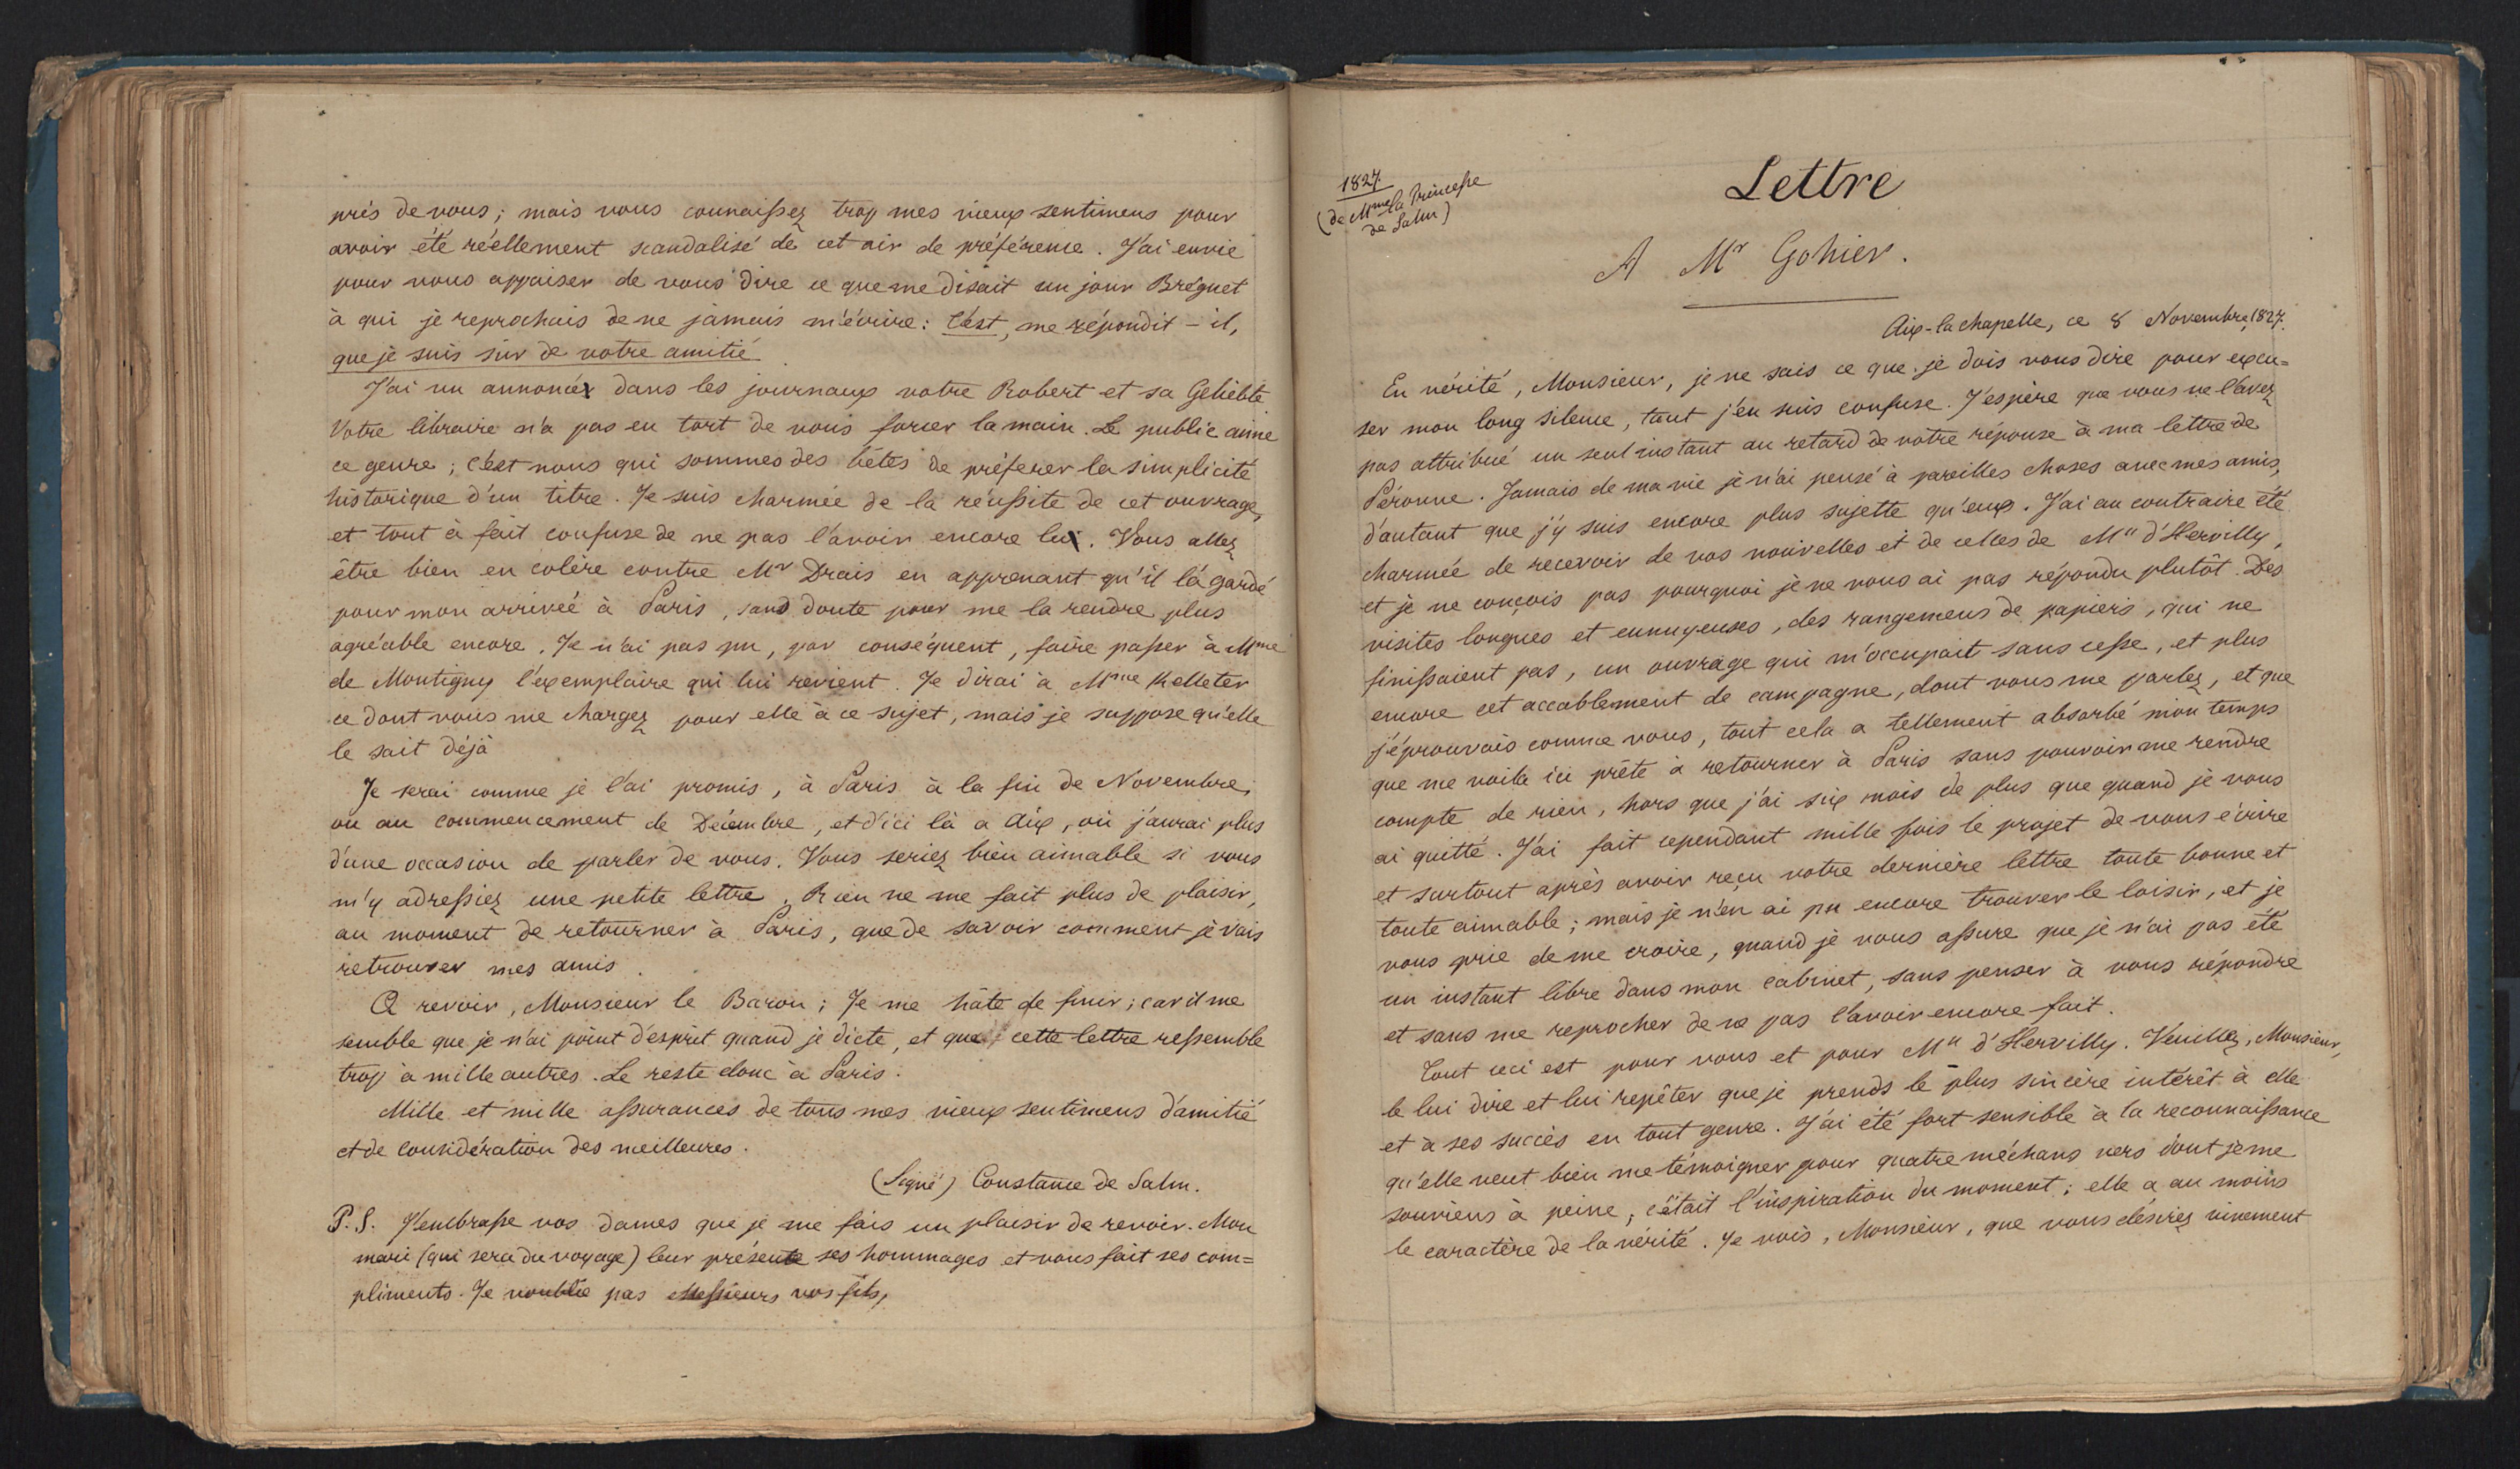 près de vous; mais vous connaissez trop mes vieux sentimens pour
avoir été réellement scandalisé de cet air de préférence. J'ai envie
pour vous appaiser de vous dire ce que me disait un jour Bréguet
à qui je reprochais de ne jamais m'écrire: C'est, me répondit-il,
que je suis sûr de votre amitié.
J'ai vu annoncer dans les journaux votre Robert et sa Geliebte
Votre libraire n'a pas eu tort de vous forcer la main. Le public aime
ce genre; c'est nous qui sommes des bêtes de préferer la simplicité
historique d'un titre. Je suis charmée de la réussite de cet ouvrage,
et tout à fait confuse de ne pas l'avoir encore lu. Vous allez
être bien en colère contre Mr Drais en apprenant qu'il l'a gardé
pour mon arrivée à Paris, sans doute pour me la rendre plus
agréable encore. Je n'ai pas pu, par conséquent, faire passer à Mme
de Montigny l'exemplaire qui lui revient. Je dirai à Mme Kelleter
ce dont vous me chargez pour elle à ce sujet, mais je suppose qu'elle
le sait déjà
Je serai comme je l'ai promis, à Paris à la fin de Novembre,
ou au commencement de Décembre, et d'ici là a Aix, où j'aurai plus
d'une occasion de parler de vous. Vous seriez bien aimable si vous
m'y adressiez une petite lettre. Rien ne me fait plus de plaisir,
au moment de retourner à Paris, que de savoir comment je vais
retrouver mes amis.
A revoir, Monsieur le Baron; Je me hâte de finir; car il me
semble que je n'ai point d'esprit quand je dicte, et que cette lettre ressemble
trop à mille autres. Le reste donc à Paris.
Mille et mille assurances de tous mes vieux sentimens d'amitié
et de considération des meilleures.
(Signé) Constance de Salm.
P.S. J'embrasse vos dames que je me fais un plaisir de revoir. Mon
mari (qui sera du voyage) leur présente ses hommages et vous fait ses com=
pliments. Je n'oublie pas Messieurs vos fils,
1827.
(de Mme la Princesse
de Salm)
Lettre
A Mr Gohier.
Aix-la chapelle, ce 8 Novembre, 1827.
En vérité, Monsieur, je ne sais ce que je dois vous dire pour excu=
ser mon long silence, tant j'en suis confuse. J'espère que vous ne l'avez
pas attribué un seul instant au retard de votre réponse à ma lettre de
Péronne. Jamais de ma vie je n'ai pensé à pareilles choses avec mes amis,
d'autant que j'y suis encore plus sujette qu'eux. J'ai au contraire été
charmée de recevoir de vos nouvelles et de celles de Mlle d'Hervilly,
et je ne conçois pas pourquoi je ne vous ai pas répondu plutôt. Des
visites longues et ennuyeuses, des rangemens de papiers, qui ne
finissaient pas, un ouvrage qui m'occupait sans cesse, et plus
encore cet accablement de campagne, dont vous me parlez, et que
j'éprouvais comme vous, tout cela a tellement absorbé mon temps
que me voila ici prête à retourner à Paris sans pouvoir me rendre
compte de rien, hors que j'ai six mois de plus que quand je vous
ai quitté. J'ai fait cependant mille fois le projet de vous écrire
et surtout après avoir reçu votre dernière lettre toute bonne et
toute aimable; mais je n'en ai pu encore trouver le loisir, et je
vous prie de me croire, quand je vous assure que je n'ai pas été
un instant libre dans mon cabinet, sans penser à vous répondre
et sans me reprocher de ne pas l'avoir encore fait.
Tout ceci est pour vous et pour Mlle d'Hervilly. Veuillez, Monsieur,
le lui dire et lui repêter que je prends le plus sincère intérêt à elle
et à ses succès en tout genre. J'ai été fort sensible à la reconnaissance
qu'elle veut bien me témoigner pour quatre méchans vers dont je me
souviens à peine; c'était l'inspiration du moment; elle a au moins
le caractère de la vérité. Je vois, Monsieur, que vous désirez vivement